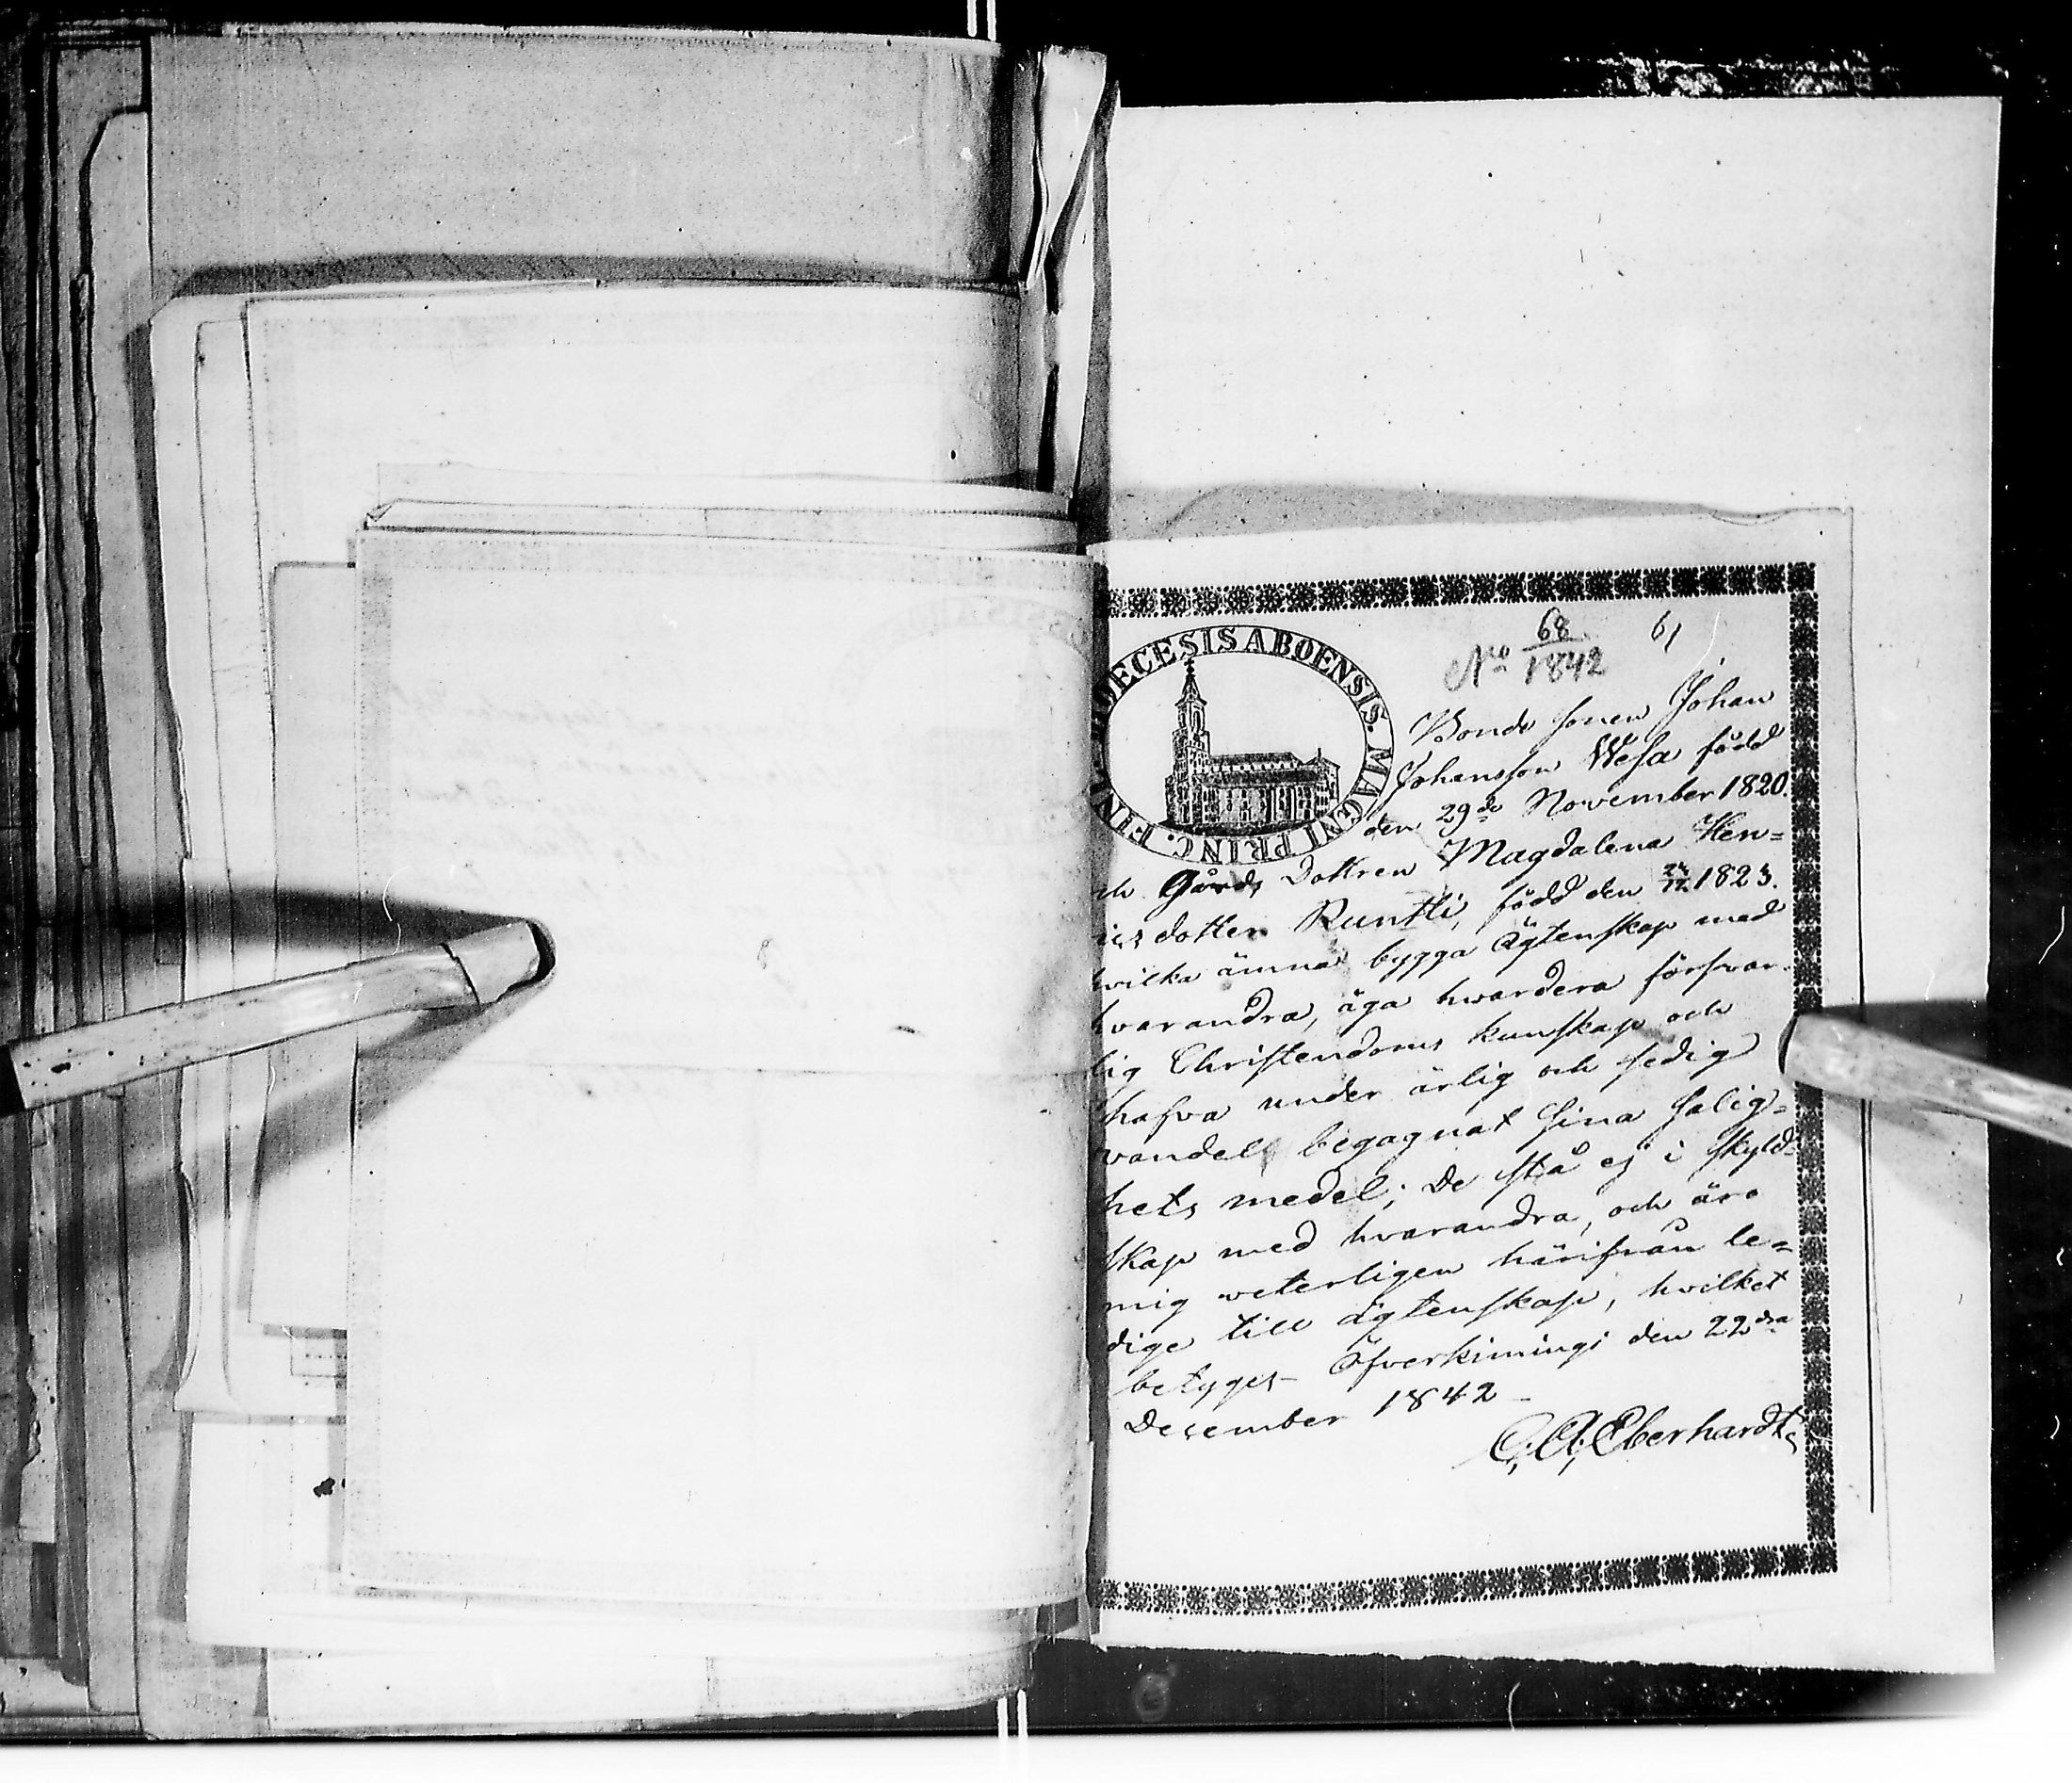 DIOECESIS ABOENSIS. MAGNI PRINC. FINL
68 61
No 1842
Bonde sonen Johan
Johansson Wesa född
den 29de November 1820.
och Gårds Dottren Magdalena Hen=
ricsdotter Runtti, född den 24/12 1823.
hvilka ämna bygga ägtenskap med
hvarandra, äga hwardera försvar-
lig Christendoms kunskap och
hafva under ärlig och sedig
vandel begagnat sina salig=
hets medel; De stå ej i skyld=
skap med hvarandra, och äro
mig veterligen härifrån le=
dige till ägtenskap, hvilket
betyges Öfverkimingi den 22dra
December 1842 -
C. A. Eberhardt